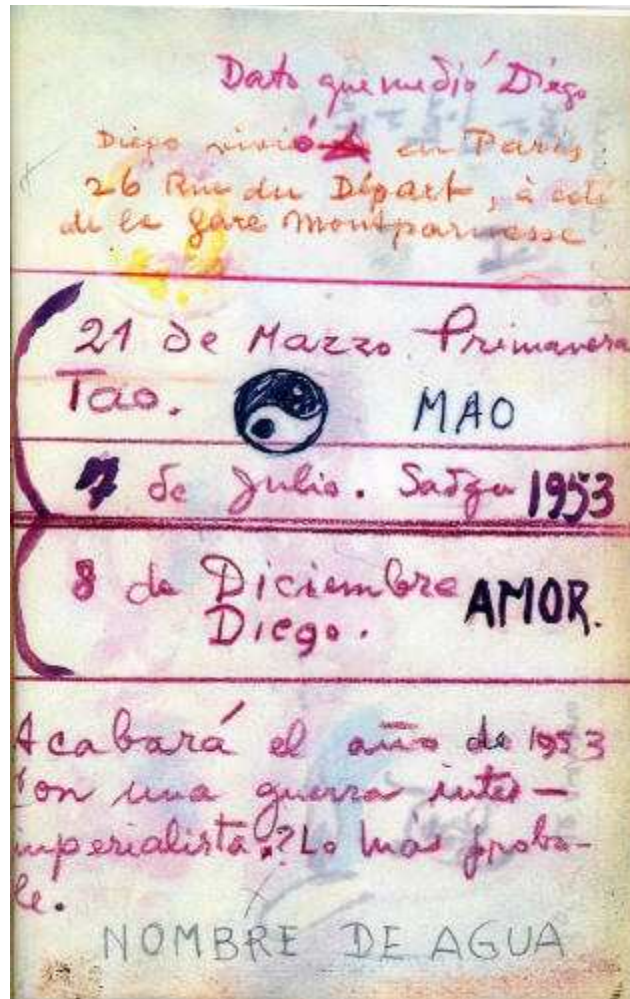 Dato que me dió Diego
Diego vivió en Paris
26 Rue du Départ, à coté
de la gare Montparnasse
21 de Marzo. Primavera
Tao. MAO
7 de Julio. Sadga 1953
8 de Diciembre AMOR.
Diego.
Acabará el año de 1953
con una guerra inter-
imperialista.? Lo más proba-
le.
NOMBRE DE AGUA